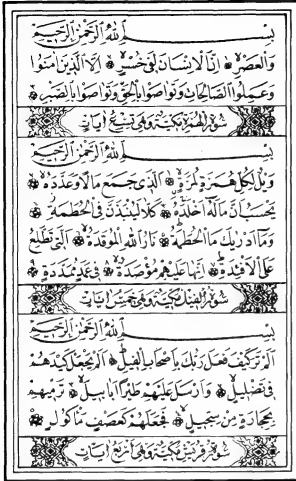 بِسْمِ اللّٰهِ الرَّحْمٰنِ الرَّحِيْمِ
وَالْعَصْرِ اِنَّ الْاِنْسَانَ لَفِىْ خُسْرٍ اِلَّا الَّذِيْنَ اٰمَنُوْا
وَعَمِلُوا الصَّالِحَاتِ وَتَوَاصَوْا بِالْحَقِّ وَتَوَاصَوْا بِالصَّبْرِ
سُوْرَةُ الْهُمَزَةِ مَكِّيَّةٌ وَهِىَ تِسْعُ اٰيَاتٍ
بِسْمِ اللّٰهِ الرَّحْمٰنِ الرَّحِيْمِ
وَيْلٌ لِكُلِّ هُمَزَةٍ لُمَزَةٍ اَلَّذِىْ جَمَعَ مَالًا وَعَدَّدَهُ
يَحْسَبُ اَنَّ مَالَهُ اَخْلَدَهُ كَلَّا لَيُنْبَذَنَّ فِى الْحُطَمَةِ
وَمَا اَدْرٰيكَ مَا الْحُطَمَةُ نَارُ اللّٰهِ الْمُوْقَدَةُ اَلَّتِىْ تَطَّلِعُ
عَلَى الْاَفْئِدَةِ اِنَّهَا عَلَيْهِمْ مُؤْصَدَةٌ فِىْ عَمَدٍ مُمَدَّدَةٍ
سُوْرَةُ الْفِيْلِ مَكِّيَّةٌ وَهِىَ خَمْسُ اٰيَاتٍ
بِسْمِ اللّٰهِ الرَّحْمٰنِ الرَّحِيْمِ
اَلَمْ تَرَ كَيْفَ فَعَلَ رَبُّكَ بِاَصْحَابِ الْفِيْلِ اَلَمْ يَجْعَلْ كَيْدَهُمْ
فِىْ تَضْلِيْلٍ وَاَرْسَلَ عَلَيْهِمْ طَيْرًا اَبَابِيْلَ تَرْمِيْهِمْ
بِحِجَارَةٍ مِنْ سِجِّيْلٍ فَجَعَلَهُمْ كَعَصْفٍ مَأْكُوْلٍ
سُوْرَةُ قُرَيْشٍ مَكِّيَّةٌ وَهِىَ اَرْبَعُ اٰيَاتٍ